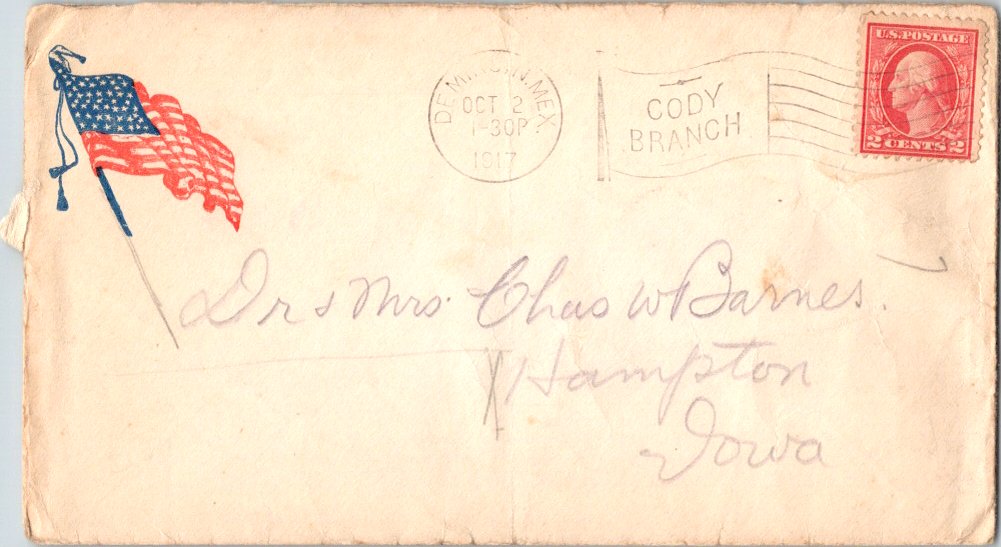 DEMING, N. MEX.
OCT 2
1-30P
1917
CODY
BRANCH
U.S. POSTAGE
2 CENTS 2
Dr & Mrs. Chas W Barnes.
Hampton
Iowa